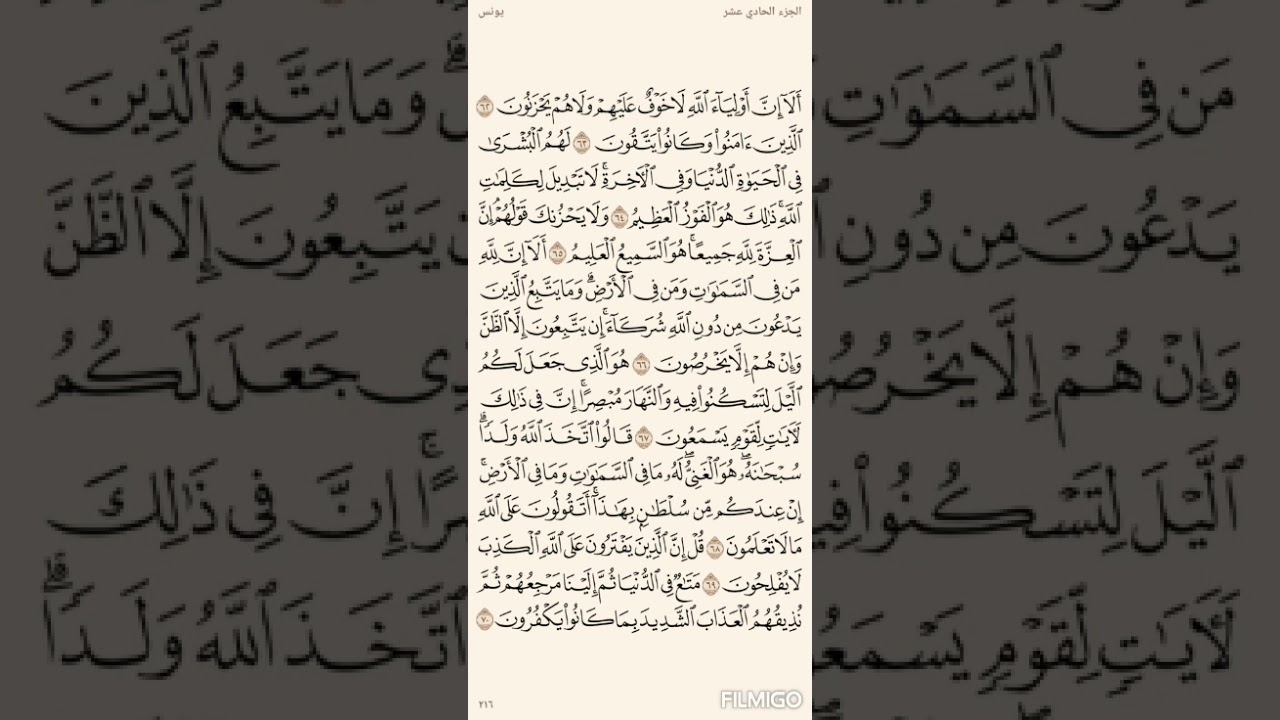 الجزء الحادي عشر
يونس
أَلَآ إِنَّ أَوْلِيَآءَ ٱللَّهِ لَا خَوْفٌ عَلَيْهِمْ وَلَا هُمْ يَحْزَنُونَ ٦٢
ٱلَّذِينَ ءَامَنُوا۟ وَكَانُوا۟ يَتَّقُونَ ٦٣ لَهُمُ ٱلْبُشْرَىٰ
فِى ٱلْحَيَوٰةِ ٱلدُّنْيَا وَفِى ٱلْءَاخِرَةِ ۚ لَا تَبْدِيلَ لِكَلِمَٰتِ
ٱللَّهِ ۚ ذَٰلِكَ هُوَ ٱلْفَوْزُ ٱلْعَظِيمُ ٦٤ وَلَا يَحْزُنكَ قَوْلُهُمْ ۘ إِنَّ
ٱلْعِزَّةَ لِلَّهِ جَمِيعًا ۚ هُوَ ٱلسَّمِيعُ ٱلْعَلِيمُ ٦٥ أَلَآ إِنَّ لِلَّهِ
مَن فِى ٱلسَّمَٰوَٰتِ وَمَن فِى ٱلْأَرْضِ ۗ وَمَا يَتَّبِعُ ٱلَّذِينَ
يَدْعُونَ مِن دُونِ ٱللَّهِ شُرَكَآءَ ۚ إِن يَتَّبِعُونَ إِلَّا ٱلظَّنَّ
وَإِنْ هُمْ إِلَّا يَخْرُصُونَ ٦٦ هُوَ ٱلَّذِى جَعَلَ لَكُمُ
ٱلَّيْلَ لِتَسْكُنُوا۟ فِيهِ وَٱلنَّهَارَ مُبْصِرًا ۚ إِنَّ فِى ذَٰلِكَ
لَءَايَٰتٍ لِّقَوْمٍ يَسْمَعُونَ ٦٧ قَالُوا۟ ٱتَّخَذَ ٱللَّهُ وَلَدًا ۗ
سُبْحَٰنَهُۥ ۖ هُوَ ٱلْغَنِىُّ ۖ لَهُۥ مَا فِى ٱلسَّمَٰوَٰتِ وَمَا فِى ٱلْأَرْضِ ۚ
إِنْ عِندَكُم مِّن سُلْطَٰنٍۭ بِهَٰذَآ ۚ أَتَقُولُونَ عَلَى ٱللَّهِ
مَا لَا تَعْلَمُونَ ٦٨ قُلْ إِنَّ ٱلَّذِينَ يَفْتَرُونَ عَلَى ٱللَّهِ ٱلْكَذِبَ
لَا يُفْلِحُونَ ٦٩ مَتَٰعٌ فِى ٱلدُّنْيَا ثُمَّ إِلَيْنَا مَرْجِعُهُمْ ثُمَّ
نُذِيقُهُمُ ٱلْعَذَابَ ٱلشَّدِيدَ بِمَا كَانُوا۟ يَكْفُرُونَ ٧٠
٢١٦
FILMIGO